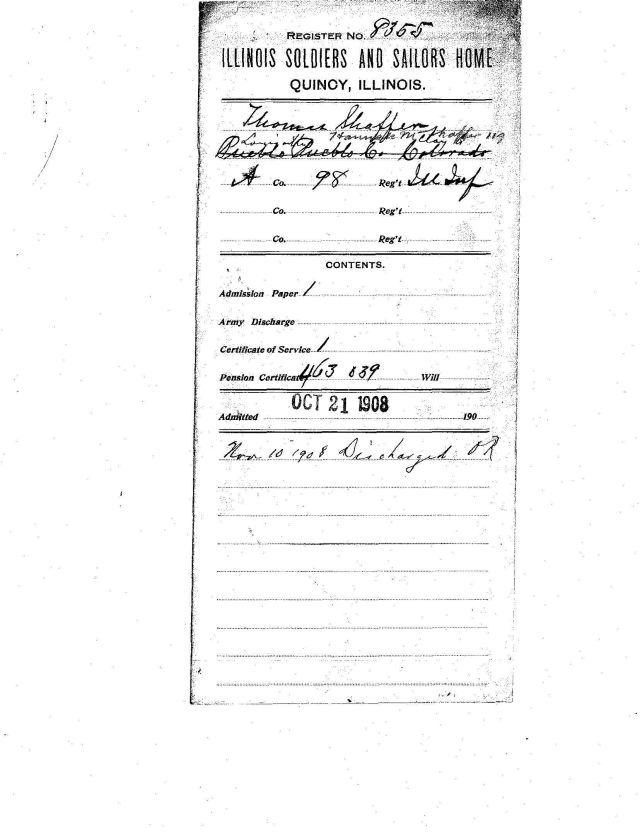 REGISTER NO. 8355
ILLINOIS SOLDIERS AND SAILORS HOME
QUINCY, ILLINOIS.
Thomas Shaffer
Pueblo Pueblo Co Colorado
A Co. 98 Reg't Ill Inf
Co. Reg't
Co. Reg't
CONTENTS.
Admission Paper 1
Army Discharge
Certificate of Service 1
Pension Certificate 463 839 Will
OCT 21 1908
Admitted 190
Nov. 10 1908 Discharged OR